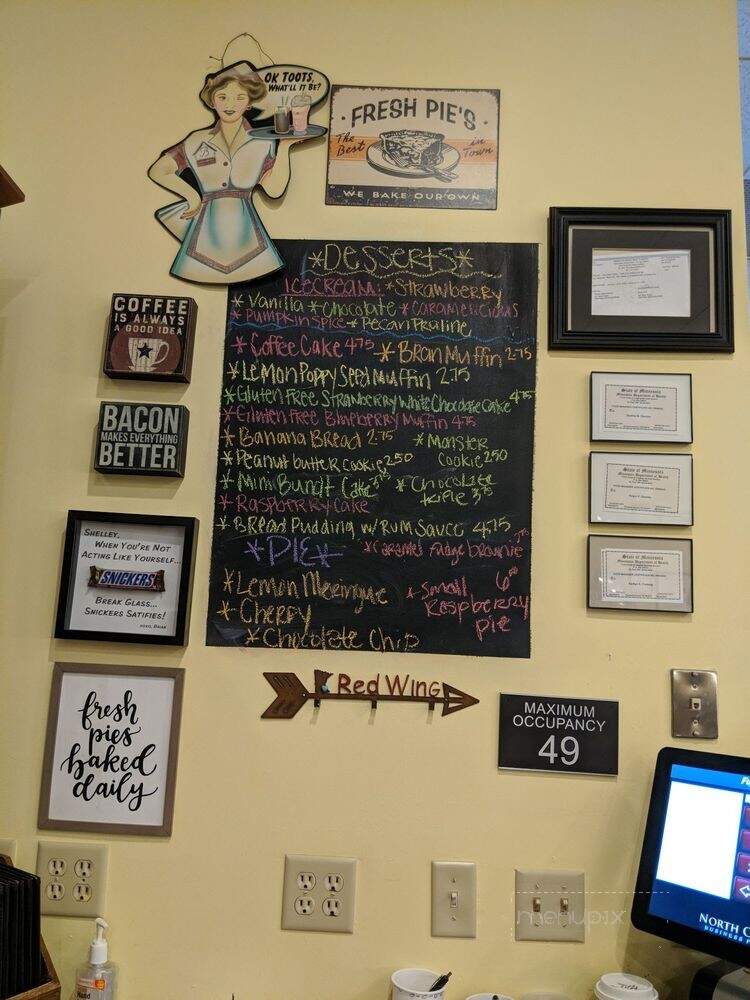 OK TOOTS,
WHAT'LL IT BE?
FRESH PIE'S
The Best in Town
WE BAKE OUR OWN
*DESSERTS*
ICECREAM: *Strawberry
*Vanilla *Chocolate *Caramelicious
*Pumpkin Spice *Pecan Praline
*Coffee Cake 4.75 *Bran Muffin 2.75
*Lemon Poppy Seed Muffin 2.75
*Gluten Free Strawberry White Chocolate Cake 4.75
*Gluten Free Blueberry Muffin 4.75
*Banana Bread 2.75 *Monster
Cookie 2.50
*Peanut butter Cookie 2.50
*Mini Bundt Cake 3.75 *Chocolate
trifle 3.75
*Raspberry Cake
*Bread Pudding w/Rum Sauce 4.75
*PIE* *Caramel Fudge brownie
*Lemon Meringue
*Small
Raspberry
pie
*Cherry
*Chocolate Chip
COFFEE
IS ALWAYS
A GOOD IDEA
BACON
MAKES EVERYTHING
BETTER
SHELLEY,
WHEN YOU'RE NOT
ACTING LIKE YOURSELF...
SNICKERS
BREAK GLASS...
SNICKERS SATISFIES!
XOXO, BRIAN
fresh
pies
baked
daily
Red Wing
MAXIMUM
OCCUPANCY
49
State of Minnesota
Minnesota Department of Health
State of Minnesota
Minnesota Department of Health
State of Minnesota
Minnesota Department of Health
NORTH
BUSINESS
menupix